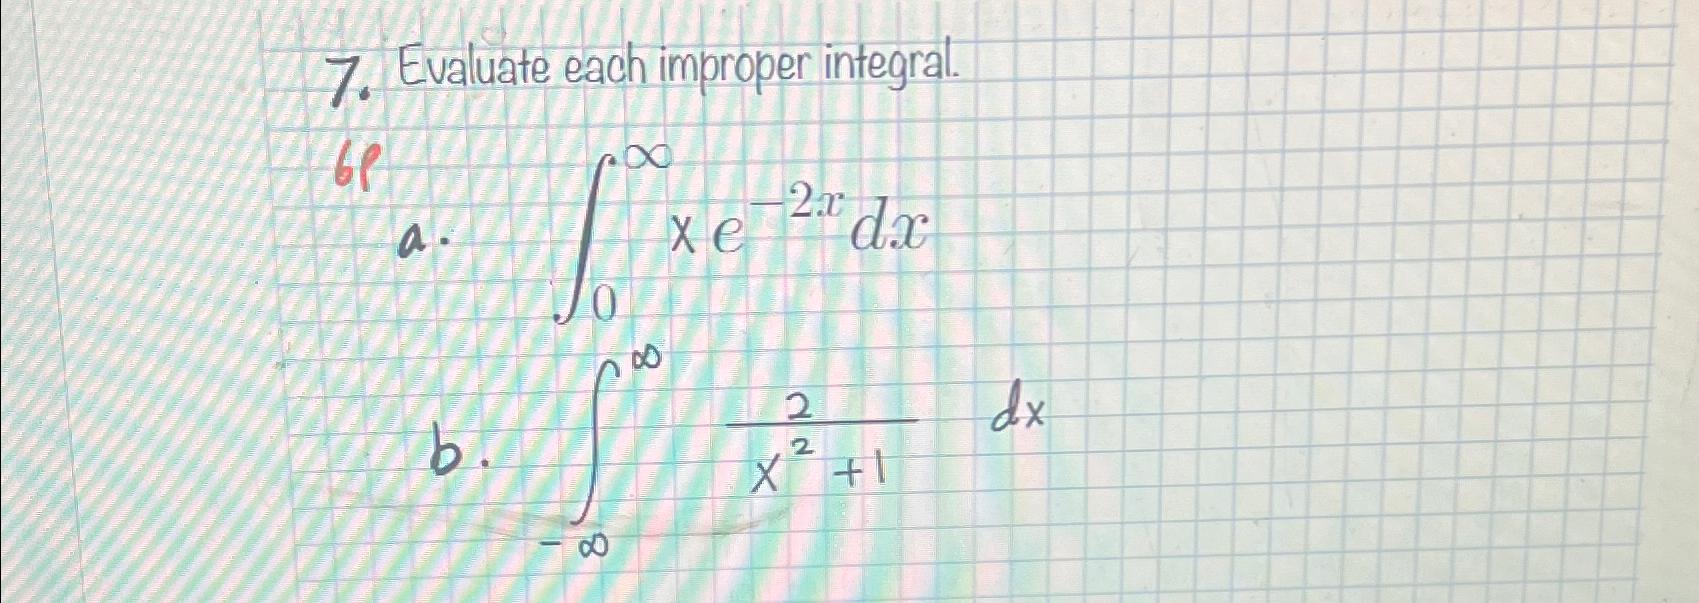 7. Evaluate each improper integral.
6p
a. ∫₀^∞ x e^{-2x} dx
b. ∫_{-∞}^∞ 2/(x² + 1) dx